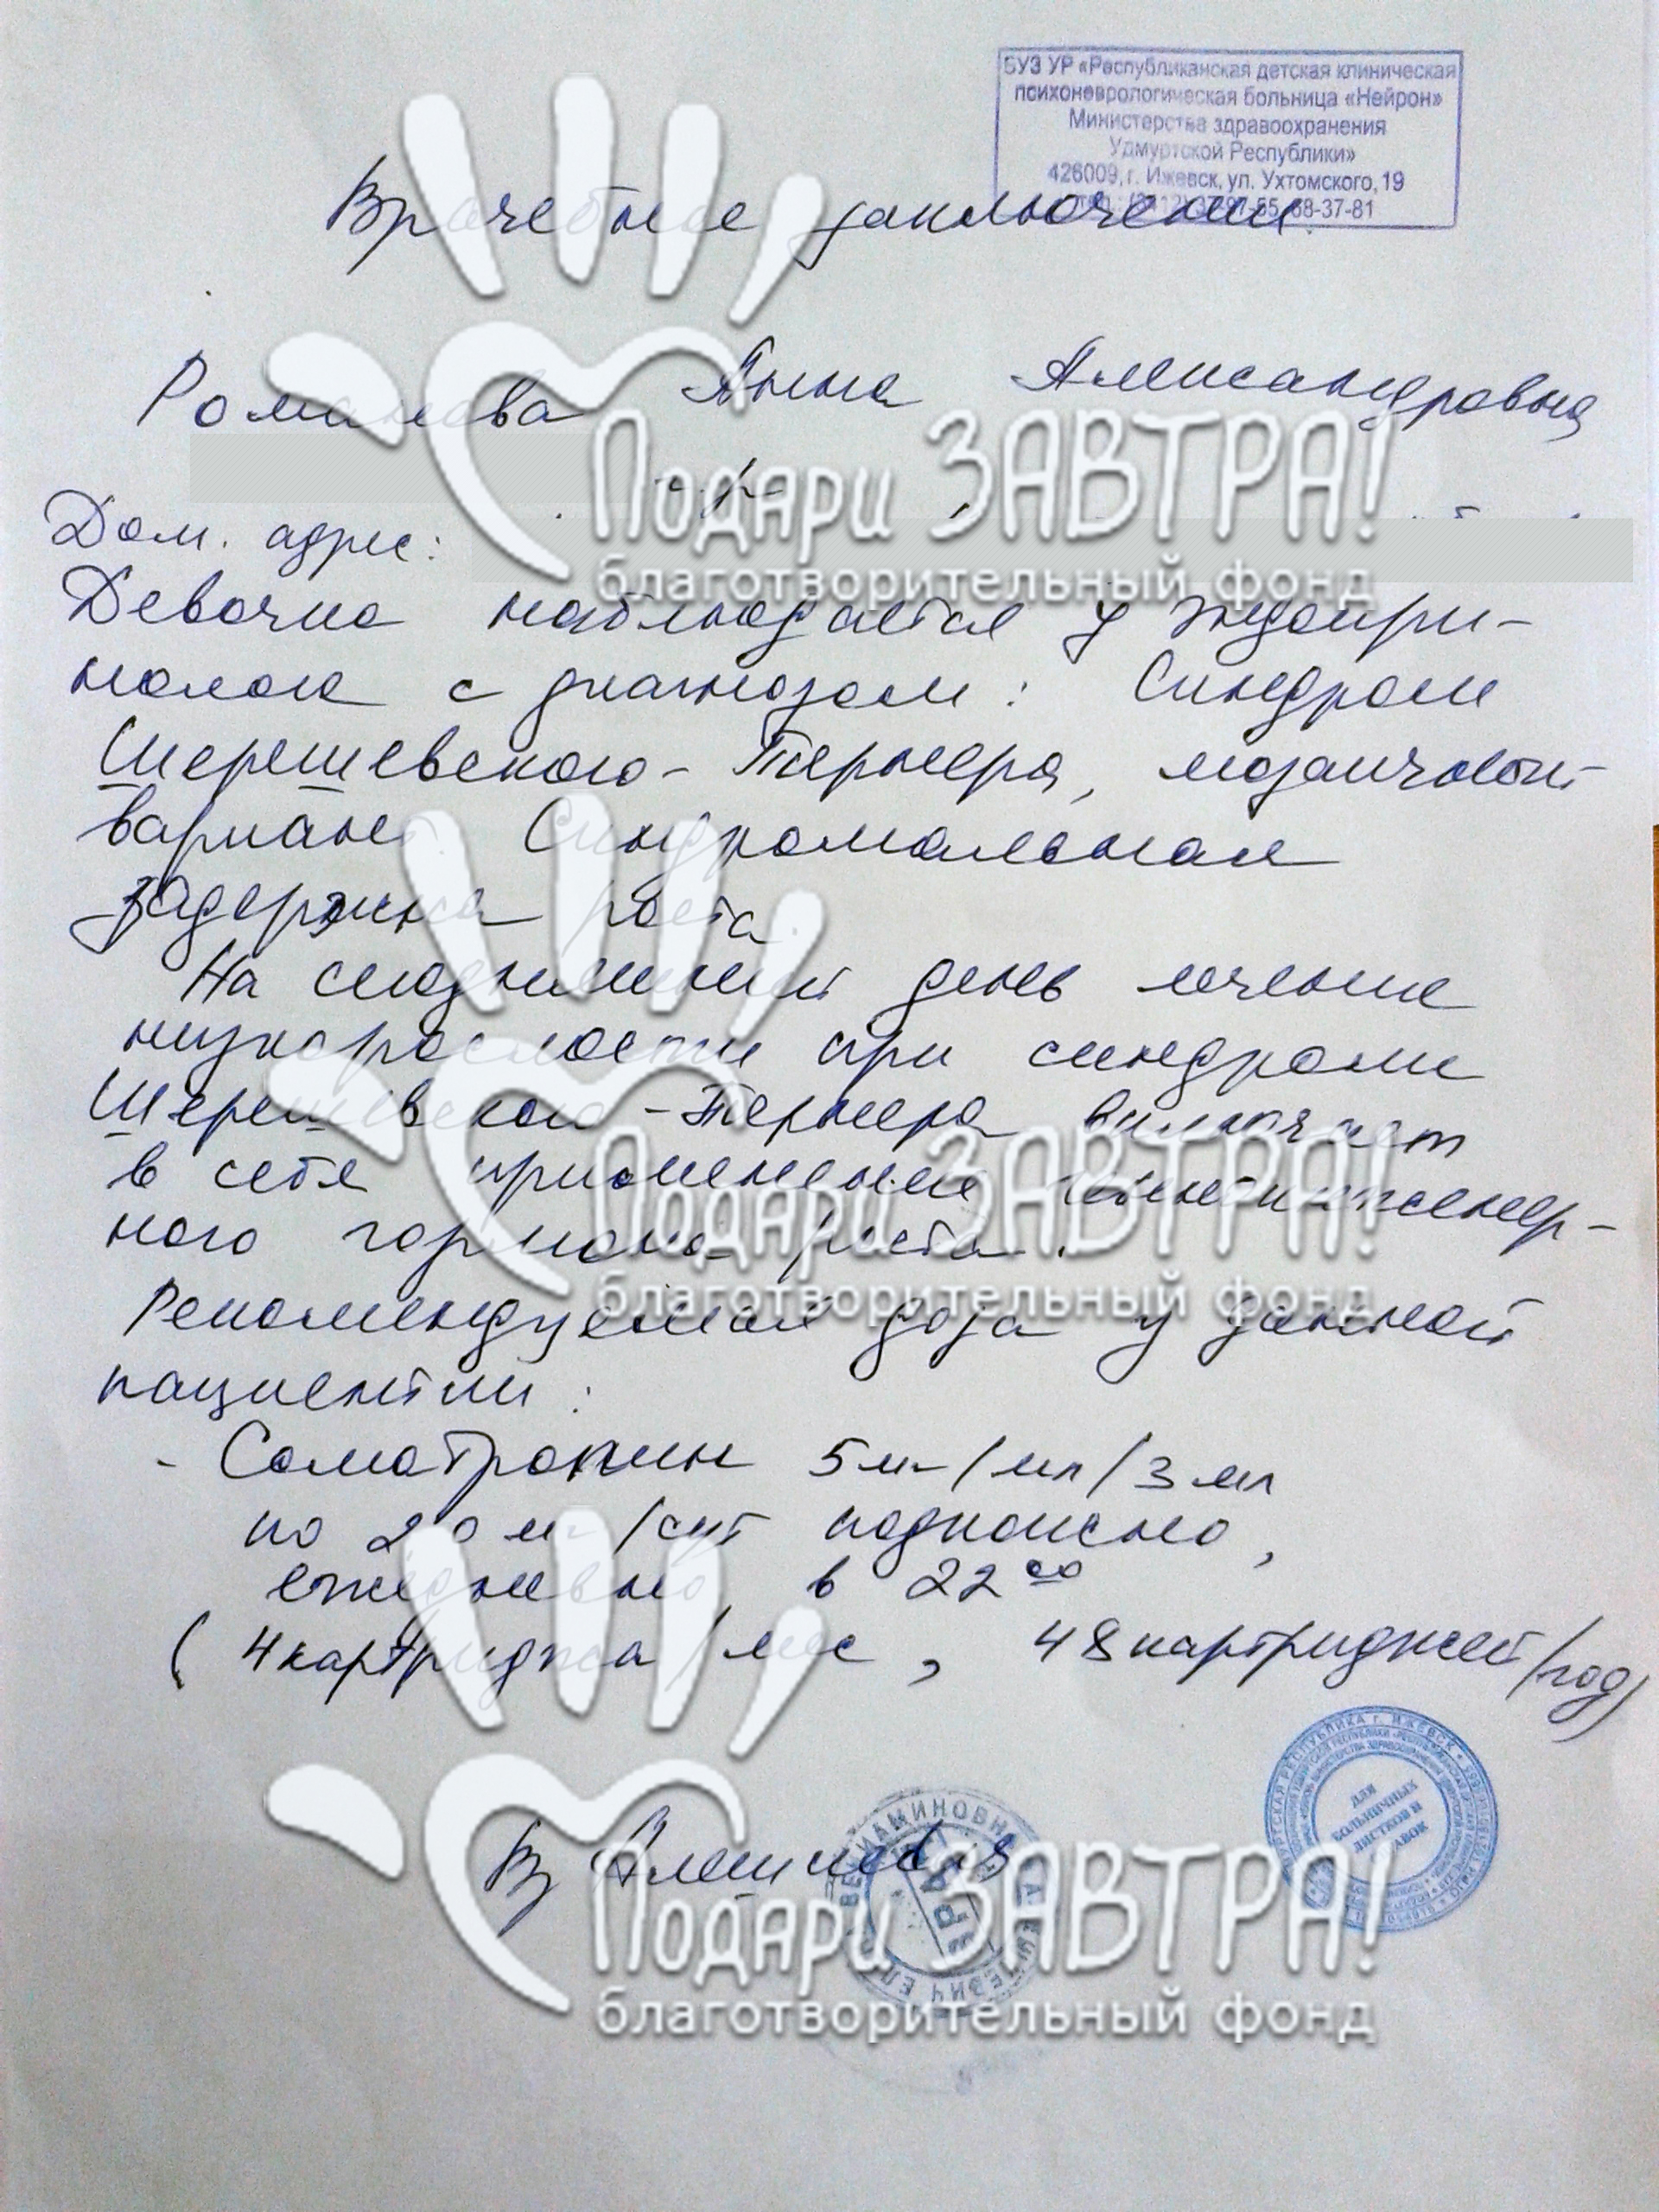 БУЗ УР «Республиканская детская клиническая
психоневрологическая больница «Нейрон»
Министерства здравоохранения
Удмуртской Республики»
426009, г. Ижевск, ул. Ухтомского, 19
68-37-81
Врачебное заключение
Романова Анна Александровна
Дом. адрес:
Девочка наблюдается у эндокри-
нолога с диагнозом: Синдром
Шерешевского-Тернера, мозаичный
вариант. Синдромальная
задержка роста.
На сегодняшний день лечение
низкорослости при синдроме
Шерешевского-Тернера включает
в себя применение генноинженер-
ного гормона роста.
Рекомендуемая доза у данной
пациентки:
- Соматропин 5 мг/мл/3 мл
по 2,0 мг/сут подкожно,
ежедневно в 22 00
(4 картриджа/мес, 48 картриджей/год)
ДЛЯ
БОЛЬНИЧНЫХ
ЛИСТКОВ И
Вр
ВРАЧ
Подари ЗАВТРА!
благотворительный фонд
Подари ЗАВТРА!
благотворительный фонд
Подари ЗАВТРА!
благотворительный фонд